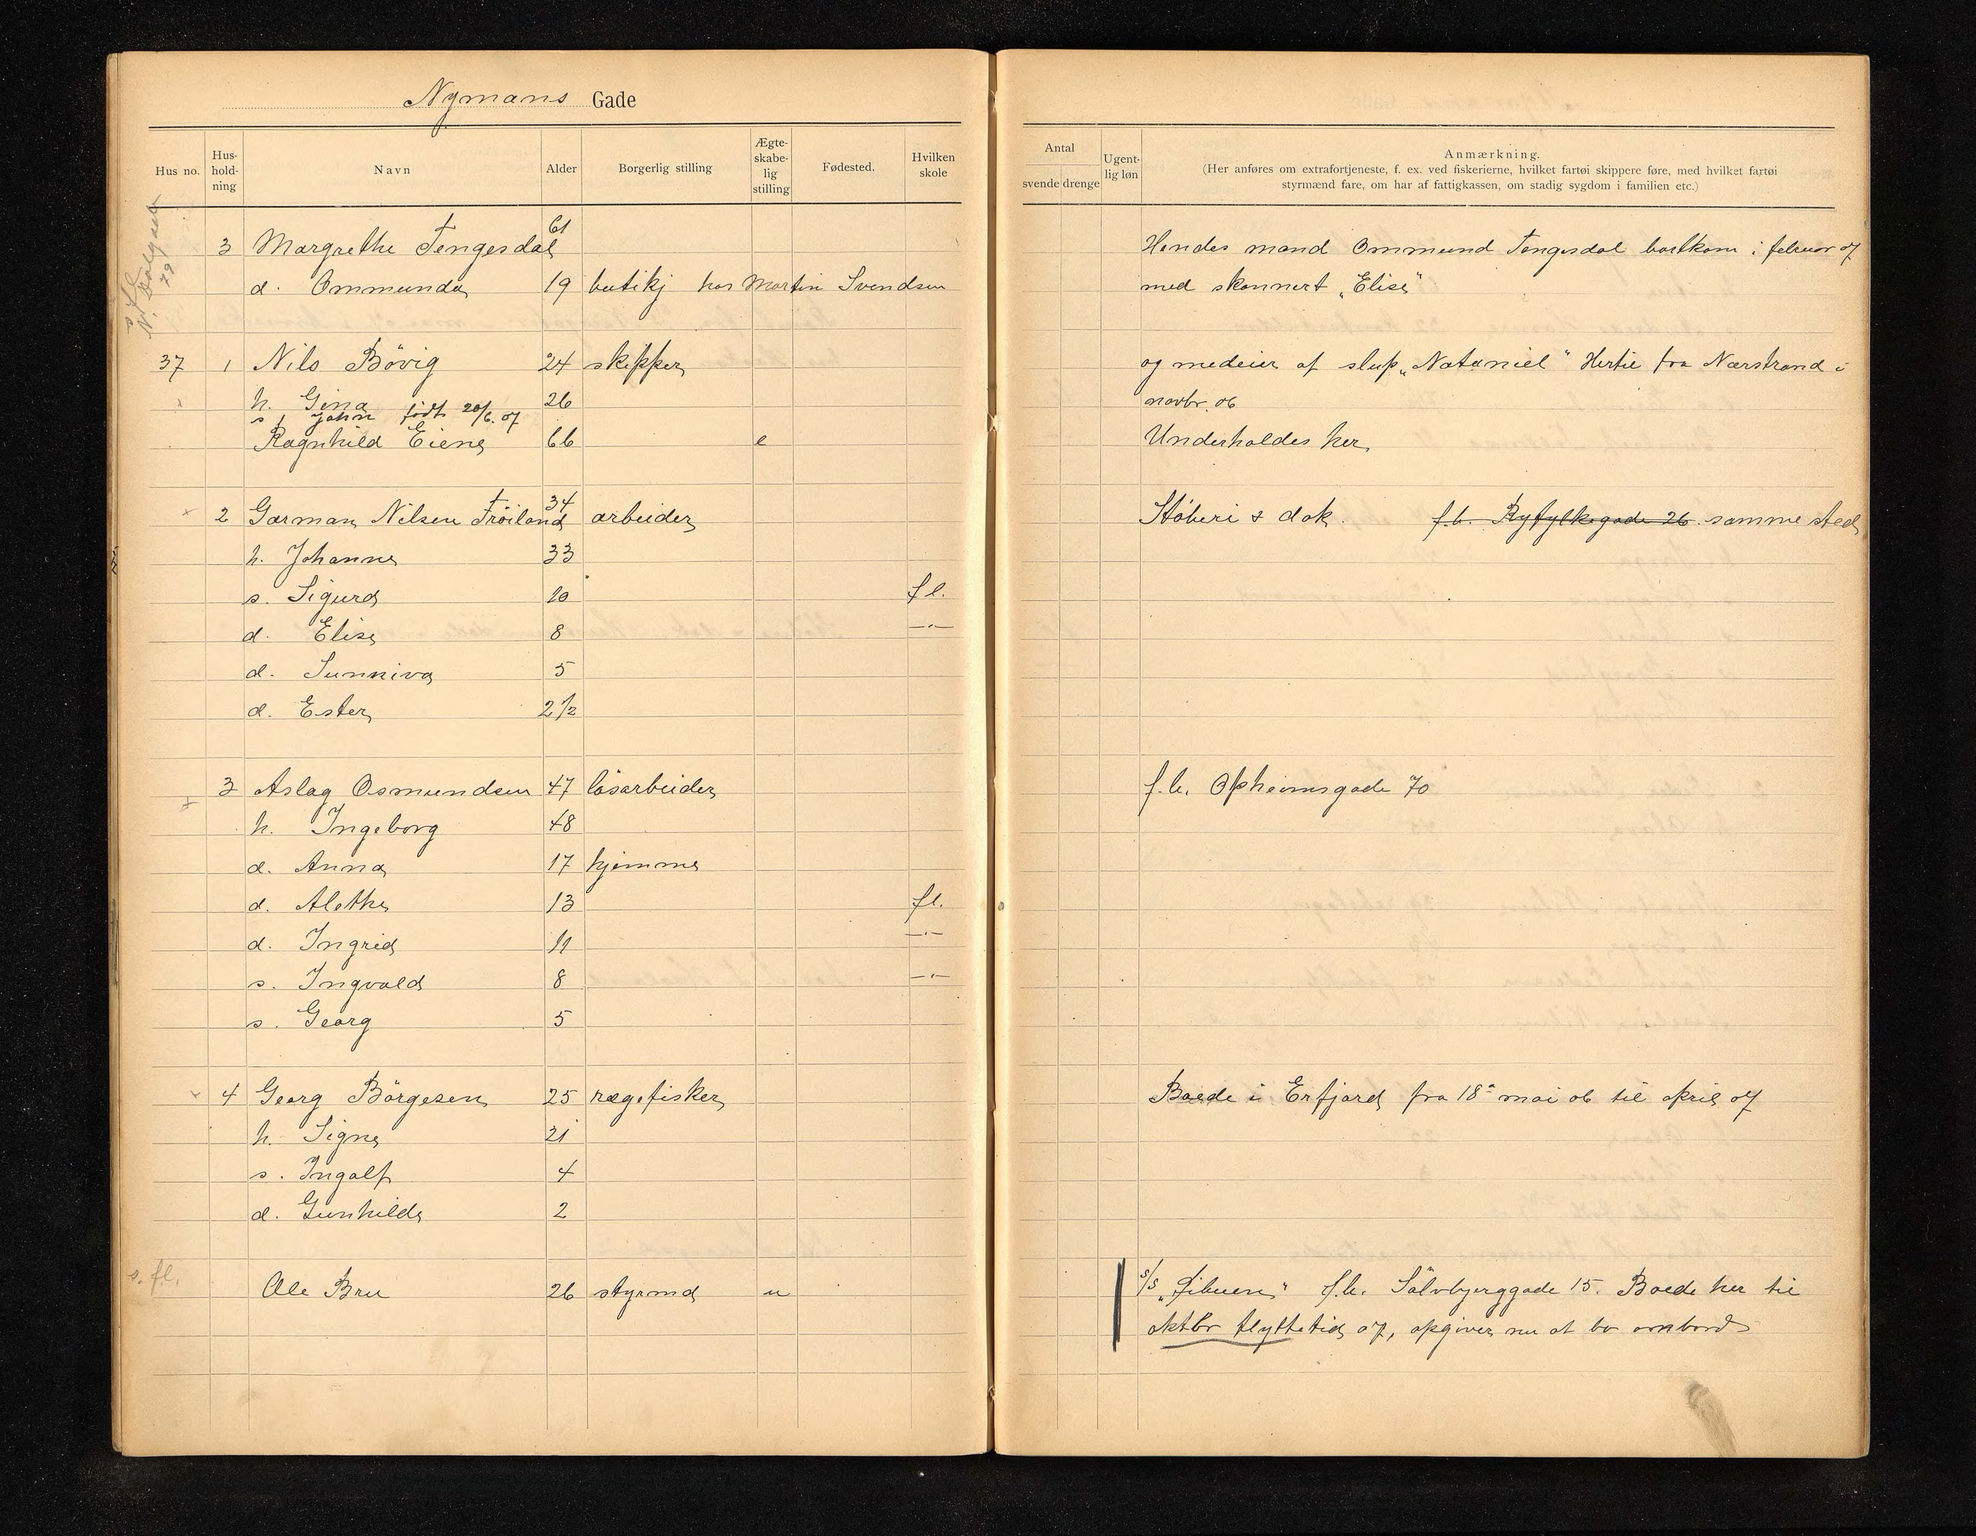 Nymans Gade
Hus no. Hus-hold-ning Navn Alder Borgerlig stilling Ægte-skabe-lig stilling Fødested. Hvilken skole
Antal svende drenge Ugent-lig løn Anmærkning.
(Her anføres om extrafortjeneste, f. ex. ved fiskerierne, hvilket fartøi skippere føre, med hvilket fartøi
styrmænd fare, om har af fattigkassen, om stadig sygdom i familien etc.)
3 Margrethe Tengesdal 61 Hendes mand Ommund Tengesdal bortkom i februar 07
d. Ommunda 19 butikj hos Martin Svendsen med skonnert "Elise"
37 1 Nils Bövig 24 skipper og medeier af slup "Nataniel" Hertil fra Nærstrand i
h. Gina 26 novbr. 06
s. John født 20/6. 07
Ragnhild Eiene 66 e Underholdes her
2 Garman Nilsen Fröiland 34 arbeider Stöberi & dok. f.b. Ryfylkegade 26 samme sted
h. Johanne 33
s. Sigurd 10 f l.
d. Elise 8 —"—
d. Sunniva 5
d. Ester 2 1/2
3 Aslag Osmundsen 47 lösarbeider f.b. Opheimsgade 70
h. Ingeborg 48
d. Anna 17 hjemme
d. Alethe 13 fl.
d. Ingrid 11 —"—
s. Ingvald 8 —"—
s. Georg 5
4 Georg Börgesen 25 rægefisker Boede i Erfjord fra 18 mai 06 til april 07
h. Signe 21
s. Ingolf 4
d. Gunhilde 2
s. fl. Ole Bru 26 styrmd u s/s f.b. Sölvbjerggade 15. Boede her til
oktbr flyttetid 07, opgiver nu at bo ombord